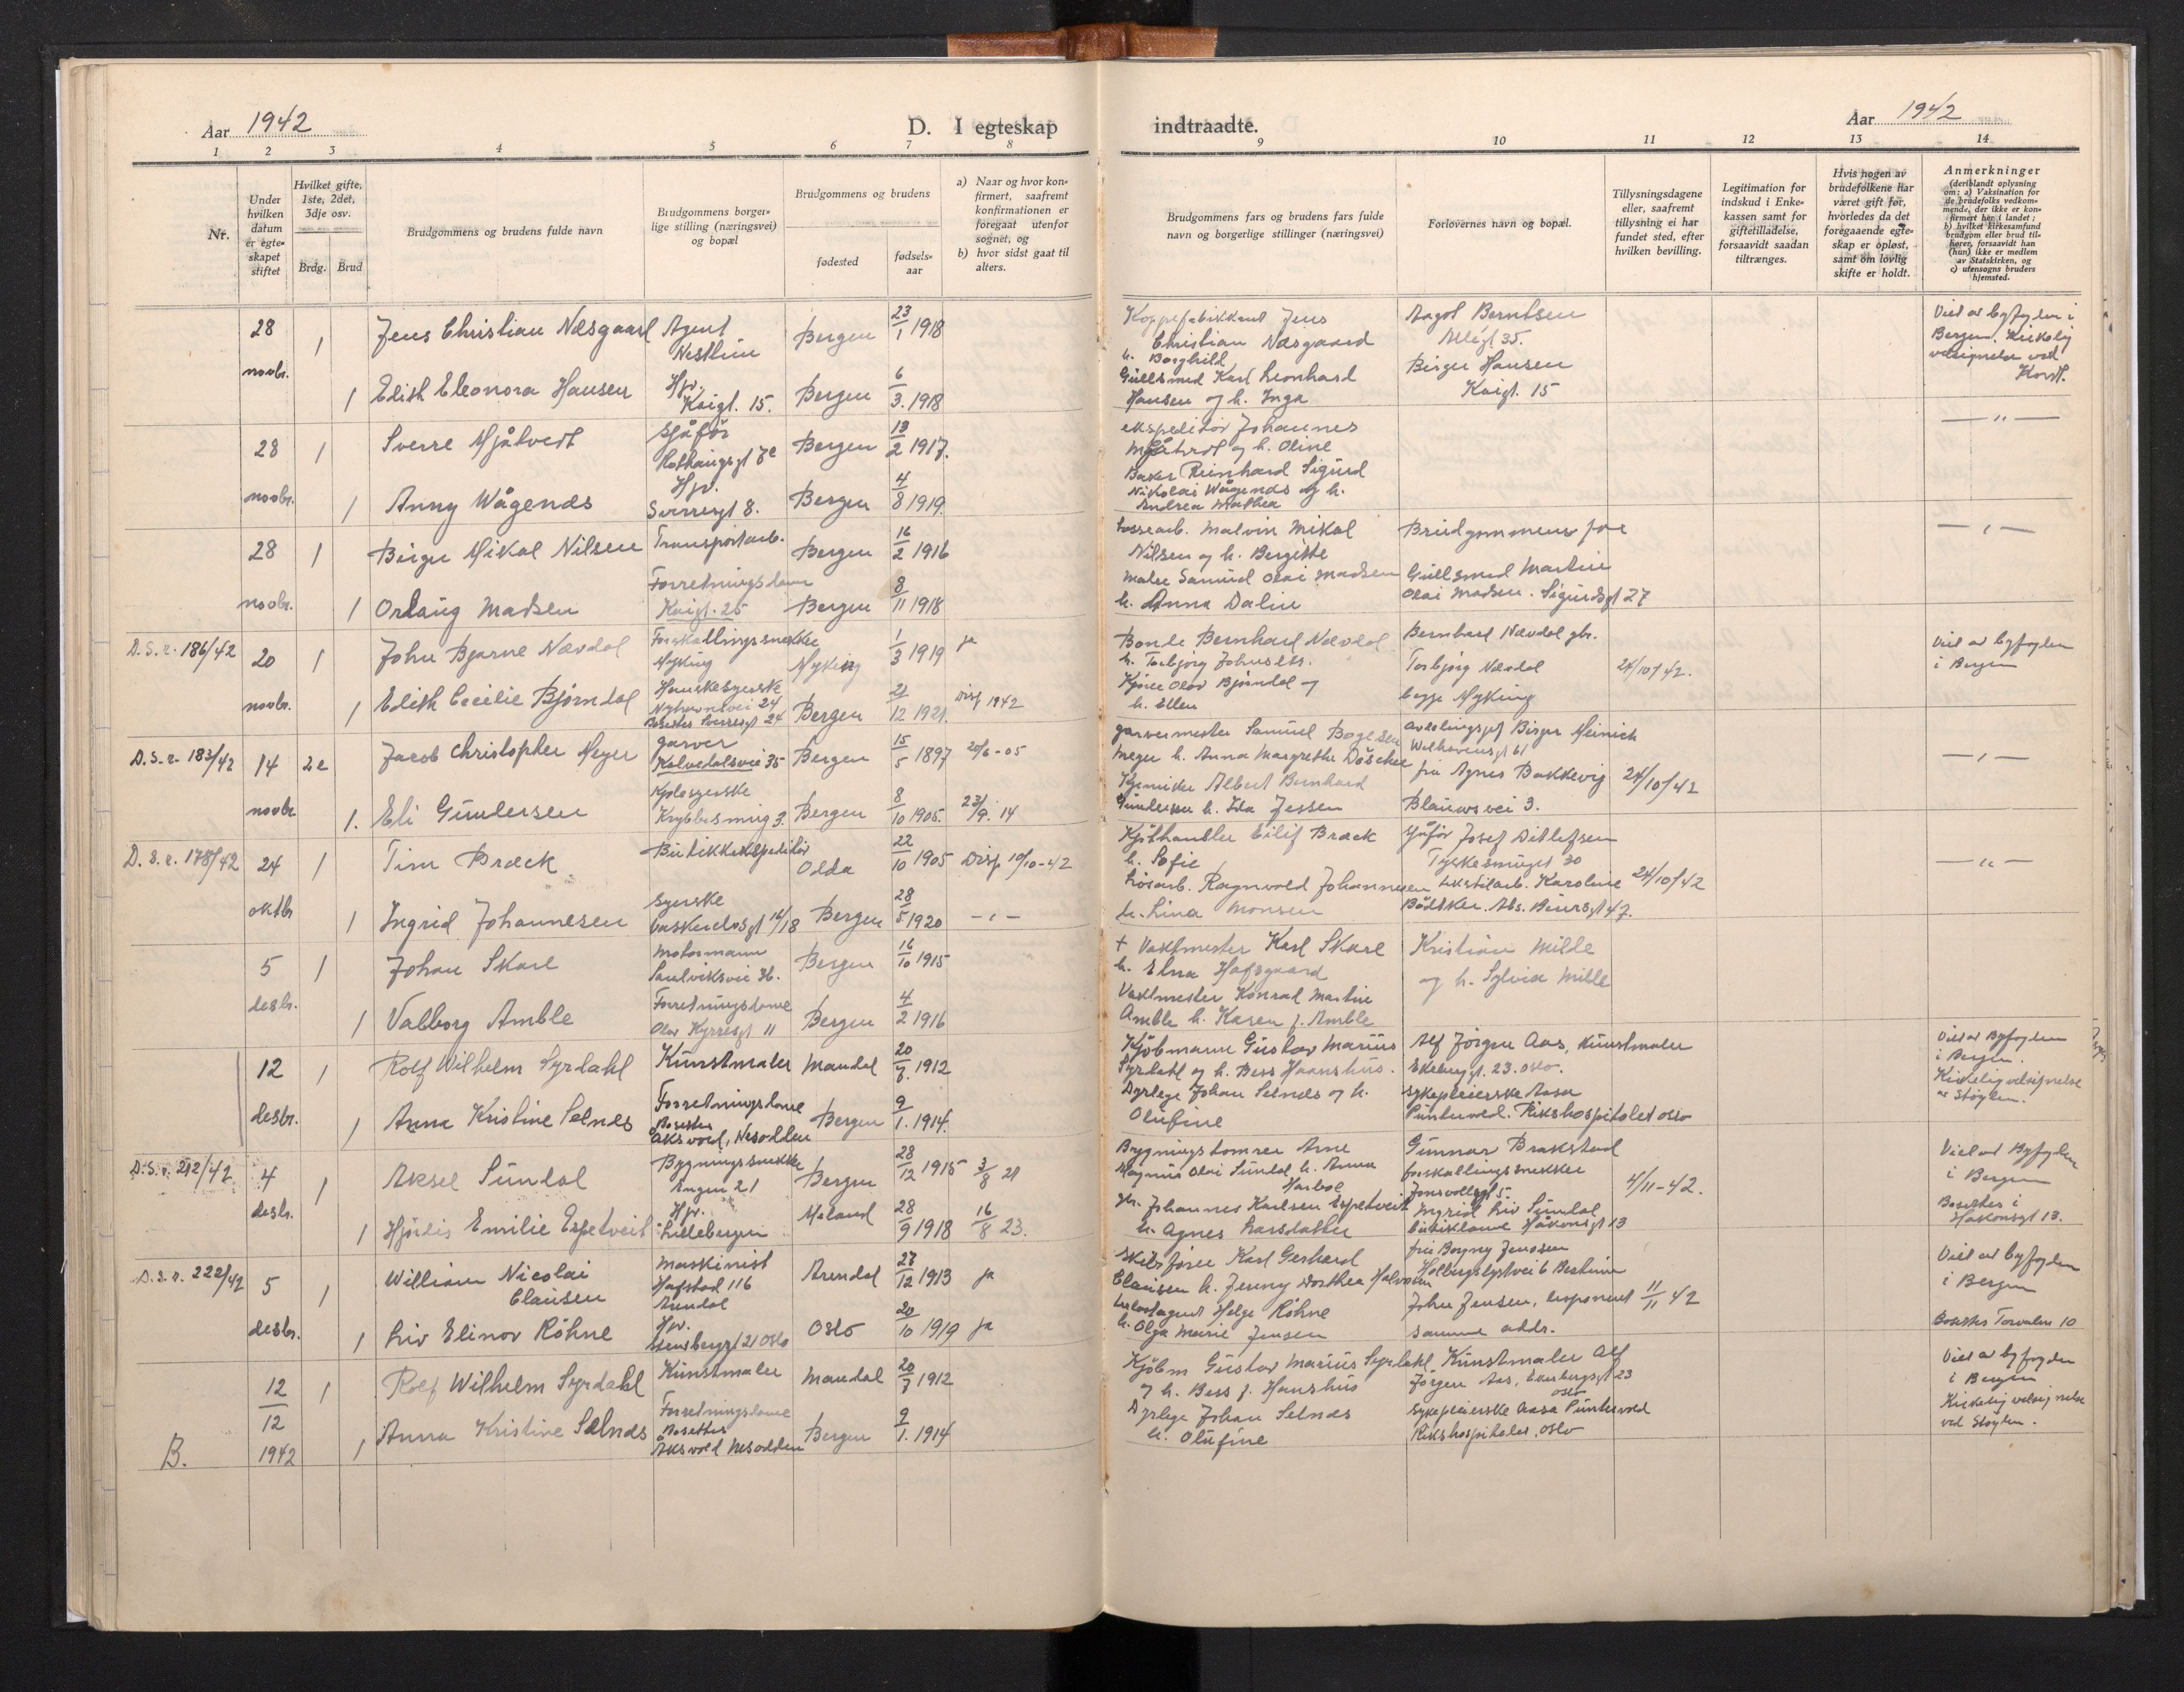 Aar 1942
D. I egteskap
indtraadte.
Aar 1942
1 2 3 4 5 6 7 8 9 10 11 12 13 14
Nr.
Under hvilken datum er egte-skapet stiftet
Hvilket gifte, 1ste, 2det, 3dje osv.
Brdg. Brud
Brudgommens og brudens fulde navn
Brudgommens borger-lige stilling (næringsvei) og bopæl
Brudgommens og brudens
fødested
fødsels-aar
a) Naar og hvor kon-firmert, saafremt konfirmationen er foregaat utenfor sognet, og
b) hvor sidst gaat til alters.
Brudgommens fars og brudens fars fulde navn og borgerlige stillinger (næringsvei)
Forlovernes navn og bopæl.
Tillysningsdagene eller, saafremt tillysning ei har fundet sted, efter hvilken bevilling.
Legitimation for indskud i Enke-kassen samt for giftetilladelse, forsaavidt saadan tiltrænges.
Hvis nogen av brudefolkene har været gift før, hvorledes da det foregaaende egte-skap er opløst, samt om lovlig skifte er holdt.
Anmerkninger
(deriblandt oplysning om: a) Vaksination for de brudefolks vedkom-mende, der ikke er kon-firmert her i landet; b) hvilket kirkesamfund brudgom eller brud til-hører, forsaavidt han (hun) ikke er medlem av Statskirken, og c) utensogns bruders hjemsted.
28 novbr. 1 Jens Christian Næsgaard Agent Nesttun Bergen 23/1 1918
Koppefabrikkant Jens Christian Næsgaard h. Borghild
Aagot Berntsen Allégt. 35.
Viet av byfogden i Bergen. Kirkelig velsignelse ved
1 Edith Eleonora Hansen Hjv. Kaigt. 15. Bergen 6/3. 1918
Gullsmed Karl Leonhard Hansen og h. Inga
Birger Hansen Kaigt. 15
28 novbr. 1 Sverre Mjåtveit Sjåfør Bergen 13/2 1917.
ekspeditør Johannes Mjåtveit og h. Oline
— " —
1 Anny Wågenes Hjv. Sverresgt 8. Bergen 4/8 1919.
Baker Reinhard Sigurd Nikolai Wågenes og h. Andrea Mathea
28 novbr. 1 Birger Mikal Nilsen Transportarb. Bergen 16/2 1916
Lossearb. Malvin Mikal Nilsen og h. Bergitte
Brudgommens far
— " —
1 Orlaug Madsen Forretningsdame Kaigt. 25 Bergen 8/11 1918
Maler Samuel Olai Madsen h. Anna Dalin
Gullsmed Martin Olai Madsen. Sigurdsgt 27
D. S. r. 186/42 20 novbr. 1 John Bjarne Nævdal Forskallingssnekker Myking Myking 1/3 1919 ja
Bonde Bernhard Nævdal h. Torbjørg Johnsdtr.
Bernhard Nævdal gbr. Torbjørg Nævdal begge Myking
24/10/42.
Viet av byfogden i Bergen
1 Edith Cecilie Bjørndal Hanskesyerske Nyhavnsvei 24 Bosettes Sverresgt 24 Bergen 21/12 1921. Disp 1942
Kjører Olav Bjørndal og h. Ellen
D. S. r. 183/42 14 novbr 2e Jacob Christopher Meyer garver Kalvedalsvei 35 Bergen 15/5 1897 20/6 - 05
garvermester Samuel Bøgesen Meyer h. Anna Margrethe Døscher
avdelingssjef Birger Meinich Welhavensgt 61
24/10/42
— " —
1. Eli Gundersen Kjolesyerske Krybbesmug 3. Bergen 8/10 1905. 23/9. 14
Kjemiker Albert Bernhard Gundersen h. Ida Jessen
fru Agnes Bakkevig Blaauwsvei 3.
D. S. r. 178/42 24 oktbr 1 Tim Bræck Butikkekspeditør Olda 22/10 1905 Disp 10/10-42
Kjøthandler Eilif Bræck h. Sofie
sjåfør Josef Ditlefsen Tyskesmuget 30
24/10/42
— " —
1 Ingrid Johannesen Syerske Vaskerelvsgt 16/18 Bergen 28/5 1920 — " —
Løsarb. Ragnvald Johannesen h. Lina Monsen
tekstilarb. Karoline Bødtker. Abs. Beiersgt 47.
5 desbr. 1 Johan Skarl Motormann Sandviksvei 36. Bergen 16/10 1915
+ Vaktmester Karl Skarl h. Elna Hafsgaard
Kristian Milde og h. Sylvia Milde
1 Valborg Amble Forretningsdame Olav Kyrresgt 11 Bergen 4/2 1916
Vaktmester Konrad Martin Amble h. Karen f. Amble
12 desbr. 1 Rolf Wilhelm Syrdahl Kunstmaler Mandal 20/7. 1912
Kjøbmann Gustav Marius Syrdahl og h. Bess Haanshus.
Alf Jørgen Aas, kunstmaler Ekebergt. 23. Oslo.
Viet av Byfogden i Bergen. Kirkelig velsignelse av Støylen.
1 Anna Kristine Selnes Forretningsdame Bosettes Aksvold, Nesodden Bergen 9/1. 1914.
Dyrlege Johan Selnes og h. Olufine
Sykepleierske Aasa Puntervold. Rikshospitalet Oslo
D. S. r. 212/42 4 desbr. 1 Aksel Sundal Bygningssnekker Engen 21 Bergen 28/12 1915 3/8 21
Bygningstømrer Arne Magnus Olai Sundal h. Anna
Gunnar Brakstad forskallingssnekker Jonsvollsgt 5.
4/11-42.
Viet av Byfogden i Bergen Bosettes i Håkonsgt 13.
1 Hjørdis Emilie Espetveit Hjv. Lillebergen Meland 28/9 1918 16/8 23.
gbr. Johannes Karlsen Espetveit h. Agnes Larsdatter
Ingrid Liv Sundal butikkdame Håkonsgt 13
D. S. r. 222/42 5 desbr. 1 William Nicolai Clausen Maskinist Hafstad 116 Arendal Arendal 27/12 1913 ja
Skibsfører Karl Gerhard Clausen h. Jenny Dorthea Halvorsen
fru Borgny Jensen Holbergslystvei 6
11/11 42
Viet av byfogden i Bergen
1 Liv Elinor Röhne Hjv. Stensberggt 21 Oslo Oslo 20/10 1919 ja
Helge Röhne h. Olga Marie Jensen
John Jensen, disponent samme addr.
Bosettes Torvalm 10
12/12 1942 1 Rolf Wilhelm Syrdahl Kunstmaler Mandal 20/7 1912
Kjøbm Gustav Marius Syrdahl og h. Bess f. Hanshus
Kunstmaler Alf Jørgen Aas, Ekebergsgt 23 Oslo
Viet av byfogden i Bergen Kirkelig velsignelse ved Støylen.
B. 1 Anna Kristine Selnes Forretningsdame Bosettes Aksvold Nesodden Bergen 9/1. 1914
Dyrlege Johan Selnes h. Olufine
Sykepleierske Aasa Puntervold Rikshospitalet, Oslo